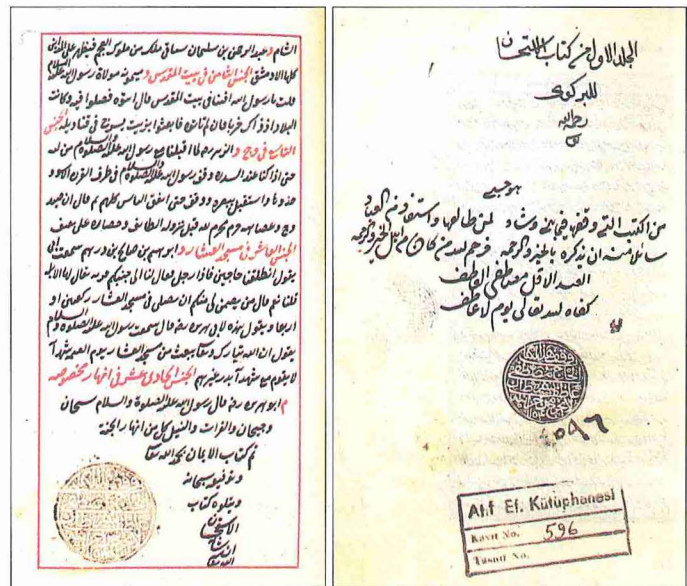 المجلد الاول من كتاب
للبركوي
رحمه الله
من الكتب التي وقفها لمن طالعها واستفاد
سائلا منه ان تذكره بالخير والرحمة فرحم الله من كان من اهل الخير والرحمة
العبد الاقل مصطفى العاطف
كفاه الله تعالى يوم لا عاطف
٥٩٦
Atıf Ef. Kütüphanesi
Kayıt No. 596
Tasnif No.
الشام د عبد الرحمن بن سلمان سياتي ملك من ملوك العجم فيظهر على المداين
كلها الا دمشق الجنس الثامن في بيت المقدس د ميمونة مولاة رسول الله عليه السلام
قلت يا رسول الله افتنا في بيت المقدس قال ائتوه فصلوا فيه وكانت
البلاد اذ ذاك حربا فان لم تاتوه فابعثوا بزيت يسرج في قناديله الجنس
التاسع في وج د الزبير رم لما اقبلنا مع رسول الله عليه الصلوة والسلام من لية
حتى اذا كنا عند السدرة وقف رسول الله عليه الصلوة والسلام في طرف القرن الاسود
حذوها واستقبل ببصره ووقف حتى اتفق الناس كلهم ثم قال ان صيد
وج وعضاهه حرم محرم لله قبل نزوله الطائف وحصاره على ثقيف
الجنس العاشر في مسجد العشار د ابراهيم بن صالح بن درهم سمعت ابي
يقول انطلقنا حاجين فاذا رجل فقال لنا الى جنبكم قرية يقال لها الابلة
قلنا نعم قال من يضمن لي منكم ان يصلي في مسجد العشار ركعتين او
اربعا ويقول هذه لابي هريرة رض قال سمعت رسول الله عليه الصلوة والسلام
يقول ان الله تبارك وتعا يبعث من مسجد العشار يوم القيمة شهداء
لا يقوم مع شهداء بدر غيرهم الجنس الحادي عشر في انهار مخصوصة
م ابو هريرة رض قال رسول الله عليه الصلوة والسلام سيحان
وجيحان والفرات والنيل كل من انهار الجنة
تم كتاب الايمان بحمد الله تعا
وتوفيق سبحانه
ويتلوه كتاب
ان شاء
الله تعا